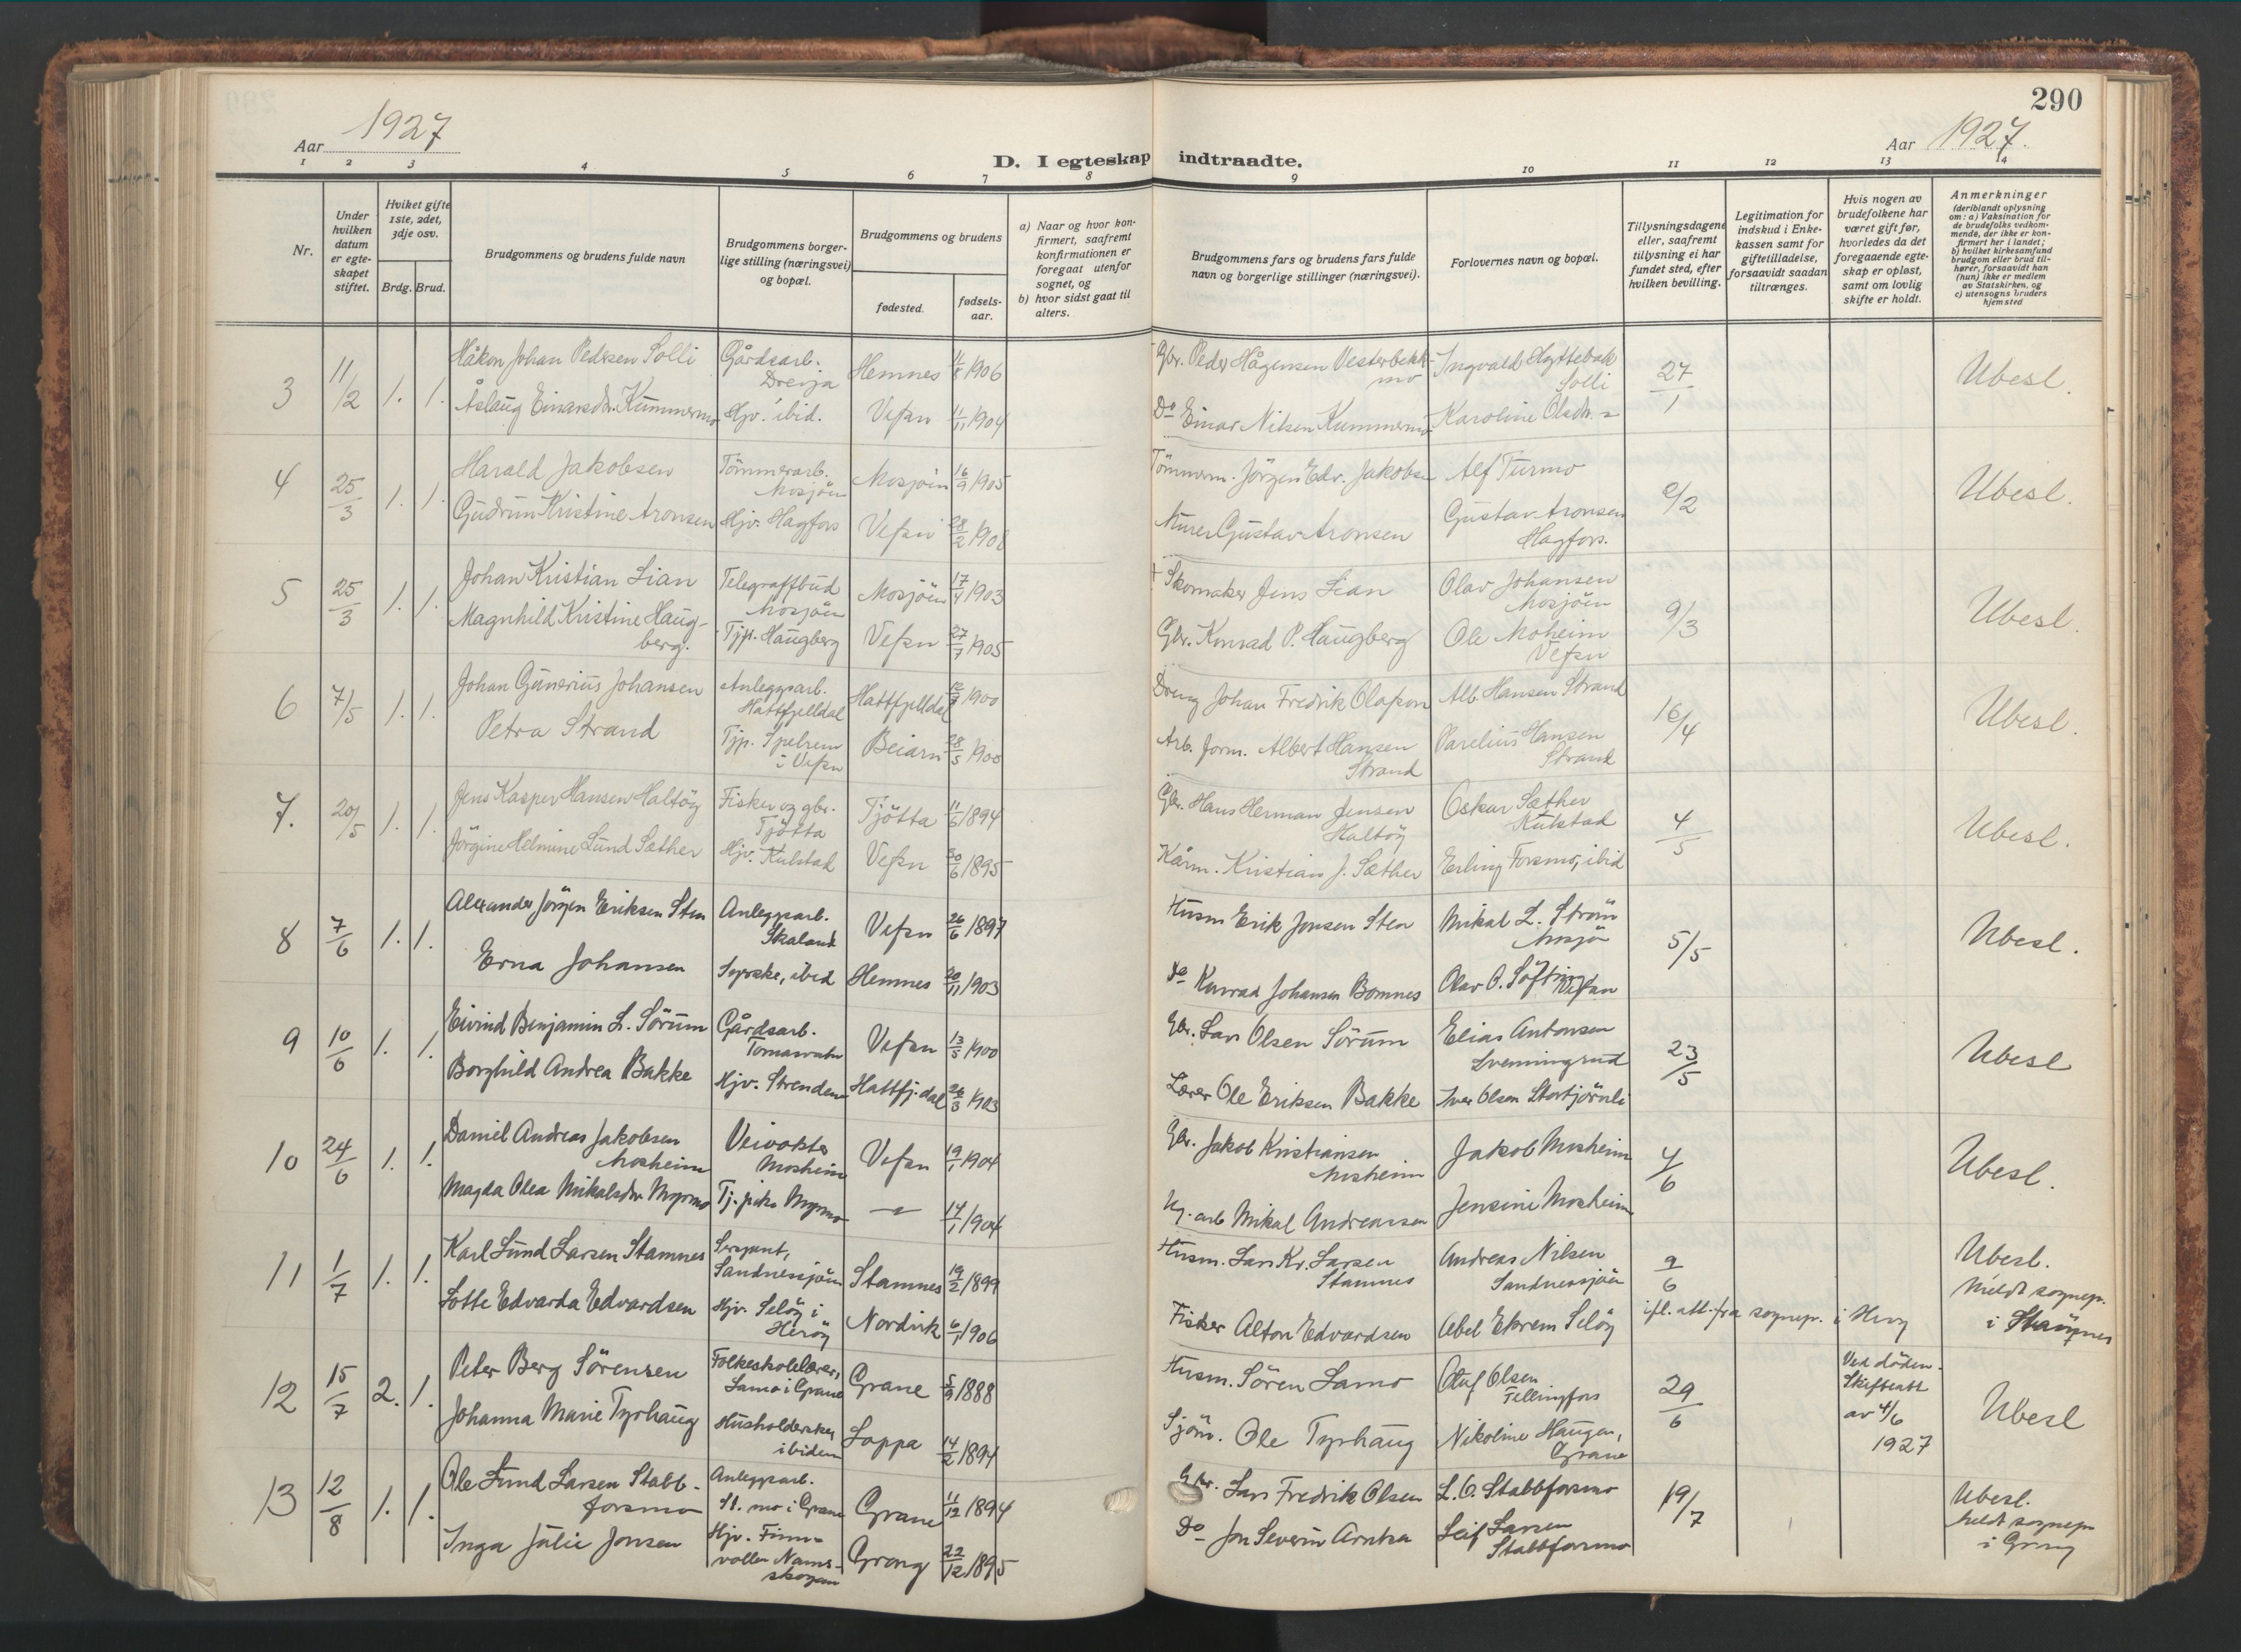 290
Aar 1927
Aar 1927.
D. I egteskap indtraadte.
1 2 3 4 5 6 7 8 9 10 11 12 13 14
Nr.
Under hvilken datum er egteskapet stiftet.
Hvilket gifte 1ste, 2det, 3dje osv.
Brdg. Brud.
Brudgommens og brudens fulde navn
Brudgommens borgerlige stilling (næringsvei) og bopæl.
Brudgommens og brudens
fødested.
fødselsaar.
a) Naar og hvor konfirmert, saafremt konfirmationen er foregaat utenfor sognet, og
b) hvor sidst gaat til alters.
Brudgommens fars og brudens fars fulde navn og borgerlige stillinger (næringsvei).
Forlovernes navn og bopæl.
Tillysningsdagene eller, saafremt tillysning ei har fundet sted, efter hvilken bevilling.
Legitimation for indskud i Enkekassen samt for giftetilladelse, forsaavidt saadan tiltrænges.
Hvis nogen av brudefolkene har været gift før, hvorledes da det foregaaende egteskap er opløst, samt om lovlig skifte er holdt.
Anmerkninger
(deriblandt oplysning om: a) Vaksination for de brudefolks vedkommende, der ikke er konfirmert her i landet; b) hvilket kirkesamfund brudgom eller brud tilhører, forsaavidt han (hun) ikke er medlem av Statskirken, og c) utensogns bruders hjemsted
3 11/2 1. 1. Håkon Johan Pedersen Solli Gårdsarb. Drevja Hemnes 11/8 1906 Gbr. Peder Hågensen Vesterbekkmo Ingvald Hyttebak Solli 27/1 Ubesl.
Åslaug Einarsdr. Kummermo Hjv. ibid. Vefsn 11/11 1904 Do Einar Nilsen Kummermo Karoline Olsdr. "
4 25/3 1. 1. Harald Jakobsen Tömmerarb. Mosjöen Mosjöen 16/9 1905 Tömmerm. Jörgen Edv. Jakobsen Alf Turmo 2/2 Ubesl.
Gudrun Kristine Aronsen Hjv. Hagfors Vefsn 28/2 1908 Murer Gustav Aronsen Gustav Aronsen Hagfors.
5 25/3 1. 1. Johan Kristian Lian Telegrafbud Mosjöen Mosjöen 17/4 1903 + Skomaker Jens Lian Olav Johansen Mosjöen 9/3 Ubesl.
Magnhild Kristine Haugberg. Tjp. Haugberg Vefsn 27/7 1905 Gbr. Konrad P. Haugberg Ole Moheim Vefsn
6 7/5 1. 1. Johan Gunerius Johansen Anleggsarb. Hattfjelldal Hattfjelldal 1900 Johan Fredrik Olafson Alb. Hansen Strand 16/4 Ubesl.
Petra Strand Tjp. Spelrem i Vefsn Beiarn 28/5 1900 Arb. form. Albert Hansen Strand Parelius Hansen Strand
7. 20/5 1. 1. Jens Kasper Hansen Haltöy Fisker og gbr. Tjötta Tjötta 11/6 1894 Gbr. Hans Herman Jensen Haltöy Oskar Sæther Kulstad 4/5 Ubesl.
Jörgine Helmine Lund Sæther Hjv. Kulstad Vefsn 30/6 1895 Kårm. Kristian J. Sæther Erling Forsmo, ibid
8 7/6 1. 1. Alexander Jörgen Eriksen Sten Anleggsarb. Skaland Vefsn 26/6 1897 Husm Erik Jonsen Sten Mikal L. Ström Mosjö 5/5 Ubesl.
Erna Johansen Syerske, ibid Hemnes 20/11 1903 Do Konrad Johansen Bomnes Olav O. Söfting Vefsn
9 10/6 1. 1. Eivind Benjamin L. Sörum Gårdsarb. Tomasvatn Vefsn 13/5 1900 Gbr. Lars Olsen Sörum Elias Antonsen Svenningrud 23/5 Ubesl
Borghild Andrea Bakke Hjv. Strenden Hattfj.dal 26/3 1903 Lærer Ole Eriksen Bakke Iver Olsen Stortjörnli
10 24/6 1. 1. Daniel Andreas Jakobsen Mosheim Veivokter Mosheim Vefsn 19/1 1904 Gbr. Jakob Kristiansen Mosheim Jakob Mosheim 4/6 Ubesl.
Magda Olea Mikalsdr Myrmo Tj. pike Myrmo — " — 14/1 1904 arb Mikal Andreassen Jensine Mosheim
11 1/7 1. 1. Karl Lund Larsen Stamnes Sersjant, Sandnessjöen Stamnes 19/2 1899 Husm. Lars Kr. Larsen Stamnes Andreas Nilsen Sandnessjöen 9/6 Ubesl. Meldt sognepr. i Stamnes
Lotte Edvarda Edvardsen Hjv. Selöy i Heröy Nordvik 6/1 1906 Fisker Alton Edvardsen Abel Ekrem Selöy ifl. att. fra sognepr. i Heröy
12 15/7 2. 1. Peter Berg Sörensen Folkeskolelærer, Lamo i Grane Grane 5/9 1888 Husm. Sören Lamo Oluf Olsen Fellingfors 29/6 Ved döden. Skifteatt av 4/6 1927 Ubesl
Johanna Marie Tyrhaug Husholderske ibidem Loppa 14/2 1894 Sjöm. Ole Tyrhaug Nikoline Haugen, Grane
13 12/8 1. 1. Ole Lund Larsen Stabbforsmo Anleggsarb. St. mo i Grane Grane 11/12 1894 Gbr. Lars Fredrik Olsen L. O. Stabbforsmo 19/7 Ubesl. Meldt sognepr i Grong
Inga Julie Jonsen Hjv. Finnvollen Namsskogan Grong 22/12 1895 Do Jon Severin Leif Larsen Stabbforsmo